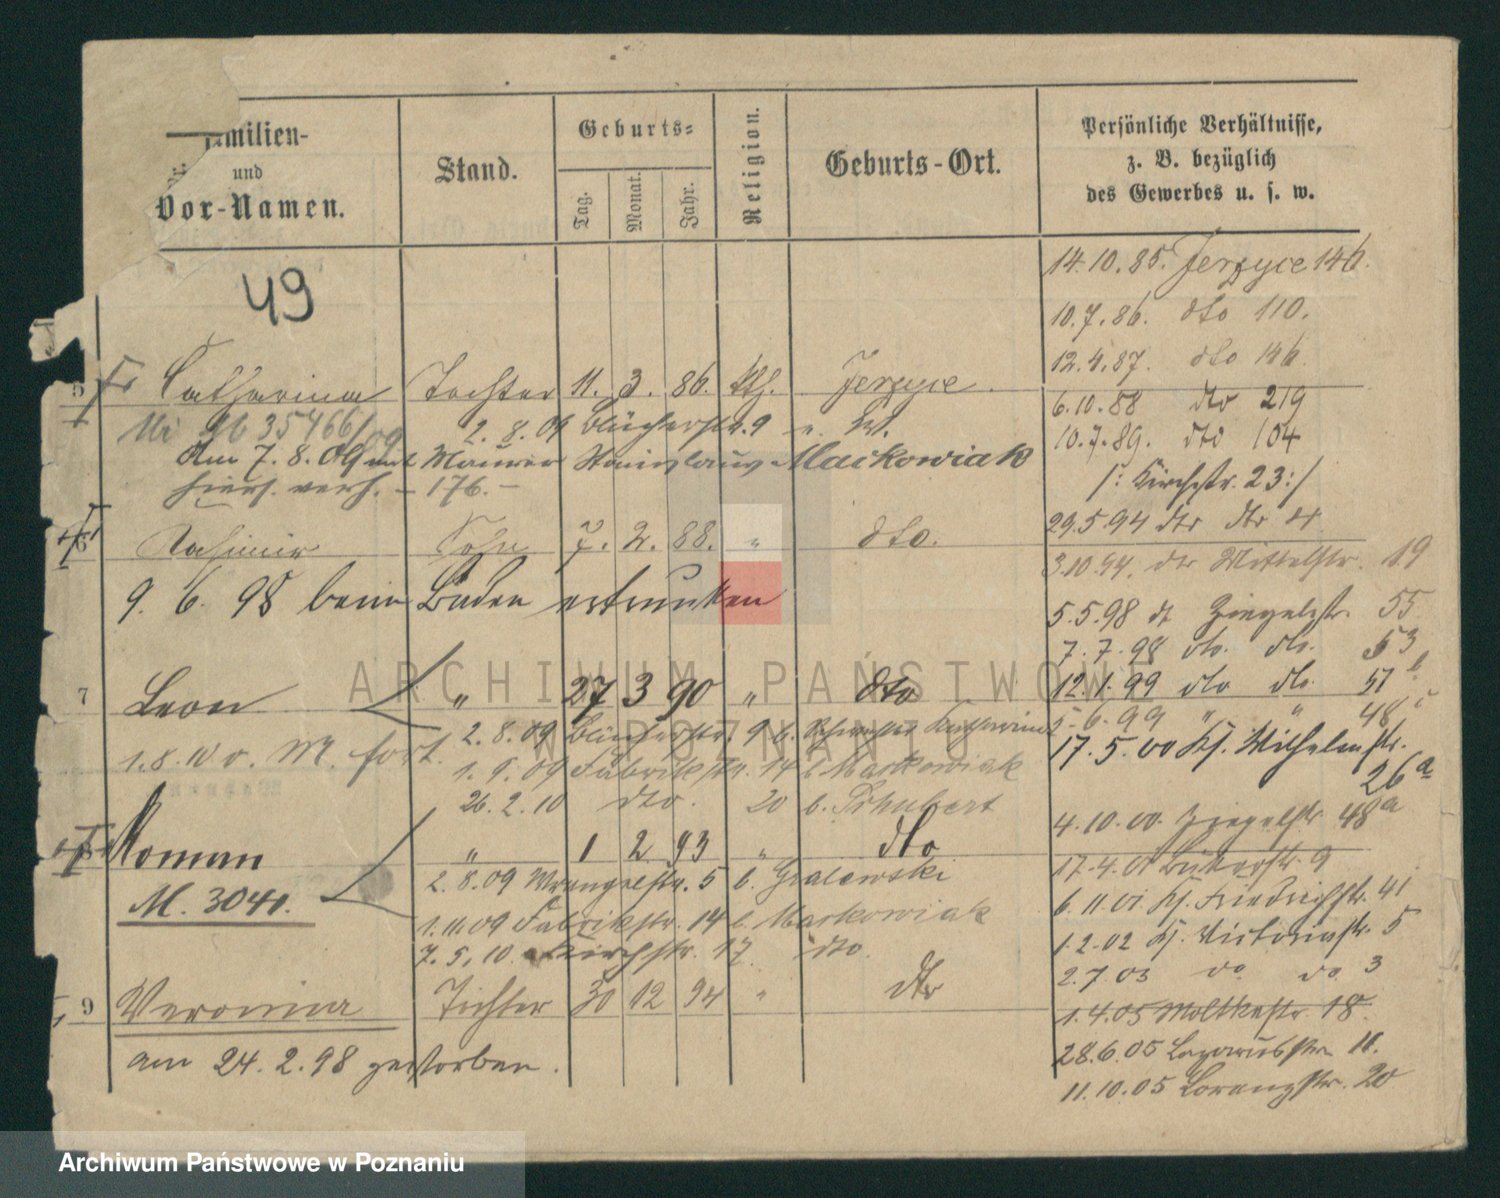 Familien-
und
Vor-Namen.
Stand.
Geburts-
Tag.
Monat.
Jahr.
Religion.
Geburts-Ort.
Persönliche Verhältnisse,
z. B. bezüglich
des Gewerbes u. s. w.
49
14.10.85. Jerzyce 146.
10.7.86. dto 110.
12.4.87. dto 146
5 Catharina Tochter 11. 3. 86. kth. Jerzyce.
6.10.88 dto 219
35466/09 2. 8. 09 Blücherstr. 9
10.7.89. dto 104
Am 7. 8. 09 mit Maurer Stanislaus Maćkowiak
/: Kirchstr. 23 :/
hiers. verh. - 176. -
29.5.94 dto dto 4
6 Kasimir Sohn 7. 2. 88. " dto.
3.10.94. dto Mittelstr. 19
9. 6. 98 beim Baden ertrunken
5.5.98 dt Ziegelstr. 55
7.7.98 dto. dto. 53
7 Leon " 27 3 90 " dto
12.1.99 dto dto. 51
2. 8. 09 Blücherstr. 9 b. Schwester Katharina
5.6.99 " " 48
1.8.10 v. M. fort
17.5.00 Kl. Wilhelmstr.
26a
1. 9. 09 Fabrikstr. 14 b Markowiak
26. 2. 10 dto. 20 b. Schubert
4.10.00. Ziegelstr. 48a
8 Roman " 1 2 93 " dto
17.4.01 Bäckerstr. 9
M. 3041. 2. 8. 09 Wrangelstr. 5 b. Gralewski
6.11.01. Kl. Friedrichstr. 41
1.11.09 Fabrikstr. 14 b. Markowiak
1.2.02 Kl. Victoriastr. 5
7. 5. 10. Kirchstr. 17. dto.
2.7.03 do do 3
9 Veronica Tochter 30 12 94 " dto
1.4.05 Moltkestr. 18.
am 24. 2. 98 gestorben.
28.6.05 Lazarusstr. 11.
11.10.05 Lorenzstr. 20
ARCHIWUM PAŃSTWOWE
W POZNANIU
Archiwum Państwowe w Poznaniu